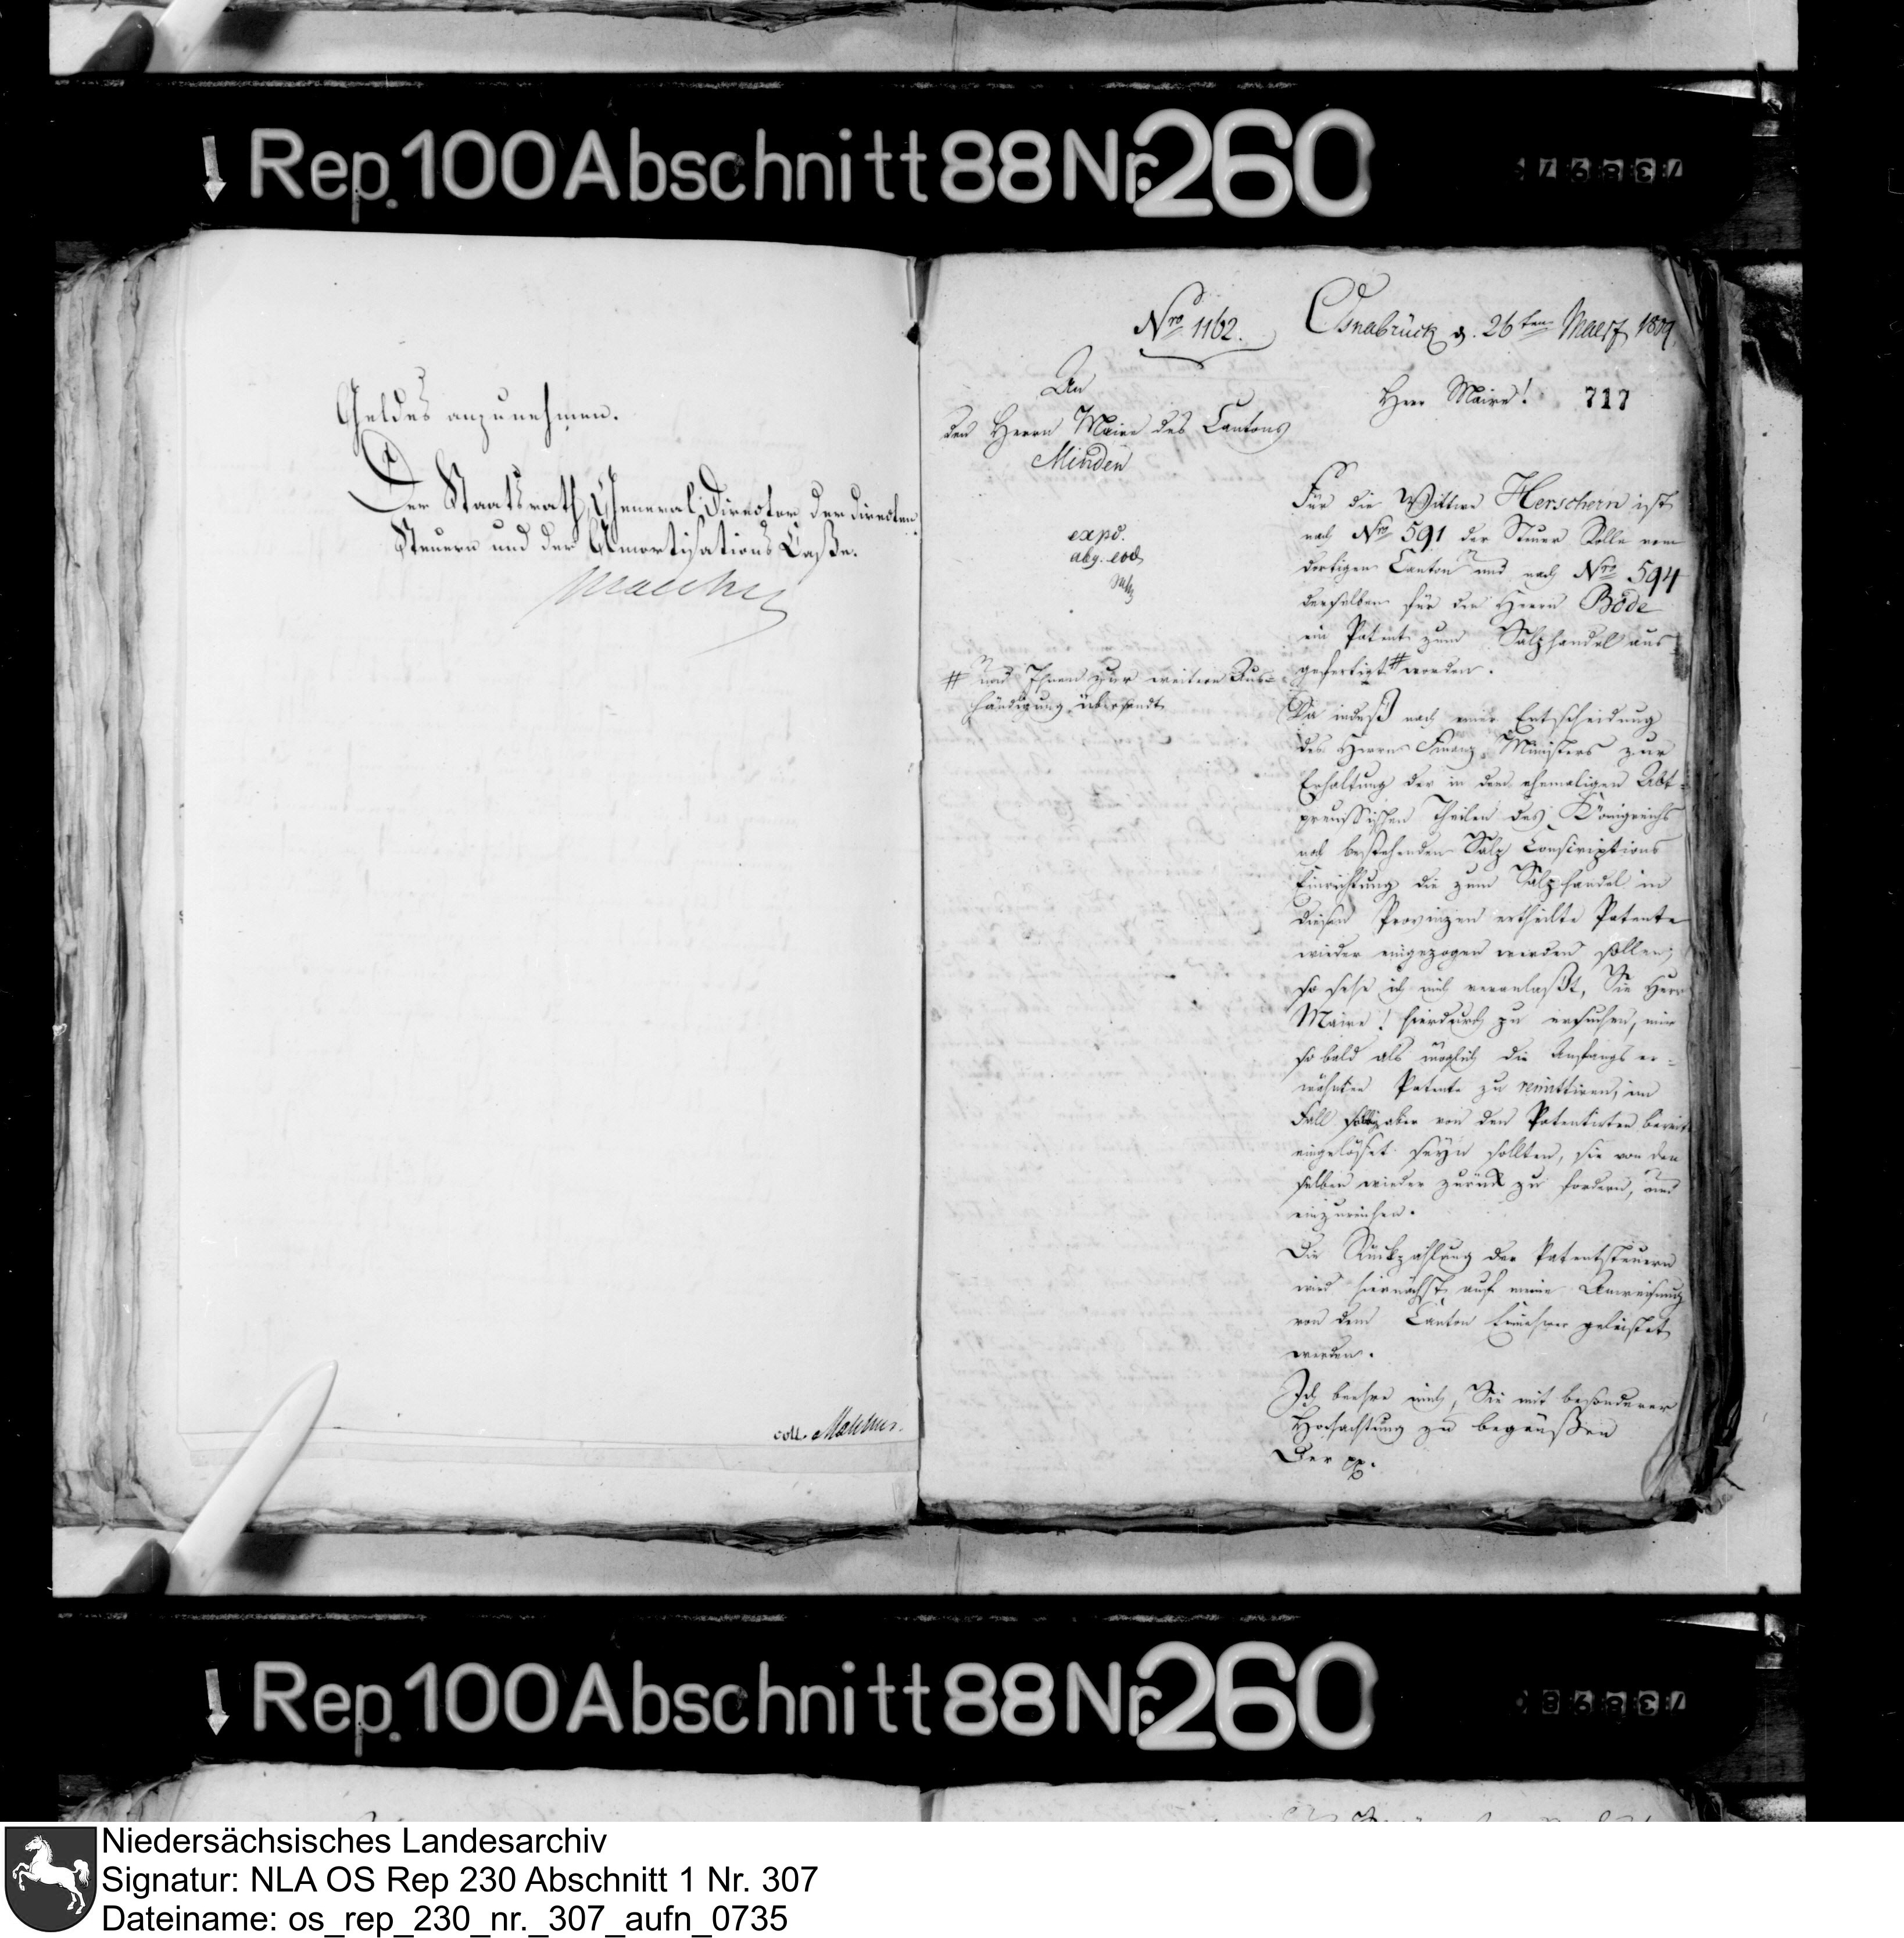 Rep. 100 Abschnitt 88 Nr. 260
73897
Geldes anzunehmen.
Der Staatsrath, General-Director der directen
Steuern und der Amortisations Caße.
Malchus
coll. Malchus.
Nro. 1162.
Osnabrück d. 26ten Maerz 1809
An
den Herrn Maire des Cantons
Minden
expd.
abg. eod
# und Ihnen zur weitern Aus-
händigung übersandt
Herr Maire! 717
Für die Wittwe Herschern ist
nach Nro 591 der Steuer Rolle vom
dortigen Canton und nach Nro 594
derselben für den Herrn Bode
ein Patent zum Salzhandel aus
gefertigt # worden.
Da indeß nach einer Entscheidung
des Herrn Finanz-Ministers zur
Erhaltung der in den ehemaligen Alt-
preussischen Theilen des Königreichs
noch bestehenden Salz Conscriptions
Einrichtung die zum Salzhandel in
diesen Provinzen ertheilte Patente
wieder eingezogen werden sollen,
so sehe ich mich veranlaßt, Sie Herr
Maire! hierdurch zu ersuchen, mir
so bald als möglich die Anfangs er-
wähnten Patente zu remittiren, im
Fall solche aber von den Patentirten bereits
eingelöset seyn sollten, sie von den
selben wieder zurück zu fordern, und
einzureichen.
Die Rückzahlung der Patentsteuern
wird hiernächst auf meine Anweisung
von dem Canton Einnehmer geleistet
werden.
Ich beehre mich, Sie mit besonderer
Hochachtung zu begrüßen
Der pp.
Rep. 100 Abschnitt 88 Nr. 260
73898
Niedersächsisches Landesarchiv
Signatur: NLA OS Rep 230 Abschnitt 1 Nr. 307
Dateiname: os_rep_230_nr._307_aufn_0735